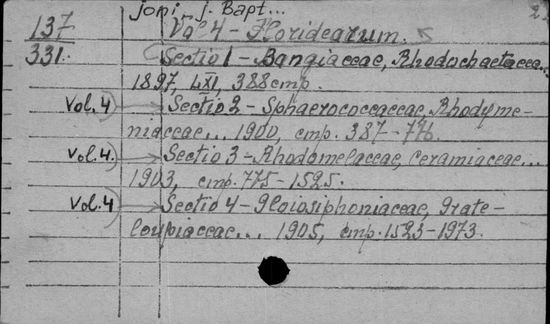 joni, j. Bapt...
137 Vol 4 - Floridearum.
331. Sectio 1 - Bangiaceae, Rhodochaetacea..
1897, LXI, 388 cmp.
Vol. 4 Sectio 2 - Sphaerococcaceae, Rhodyme-
niaceae... 1900, cmp. 387-776.
Vol. 4. Sectio 3 - Rhodomelaceae, Ceramiaceae...
1903, cmp. 775-1525.
Vol. 4 Sectio 4 - Gloiosiphoniaceae, Grate-
loupiaceae... 1905, cmp. 1523-1973.